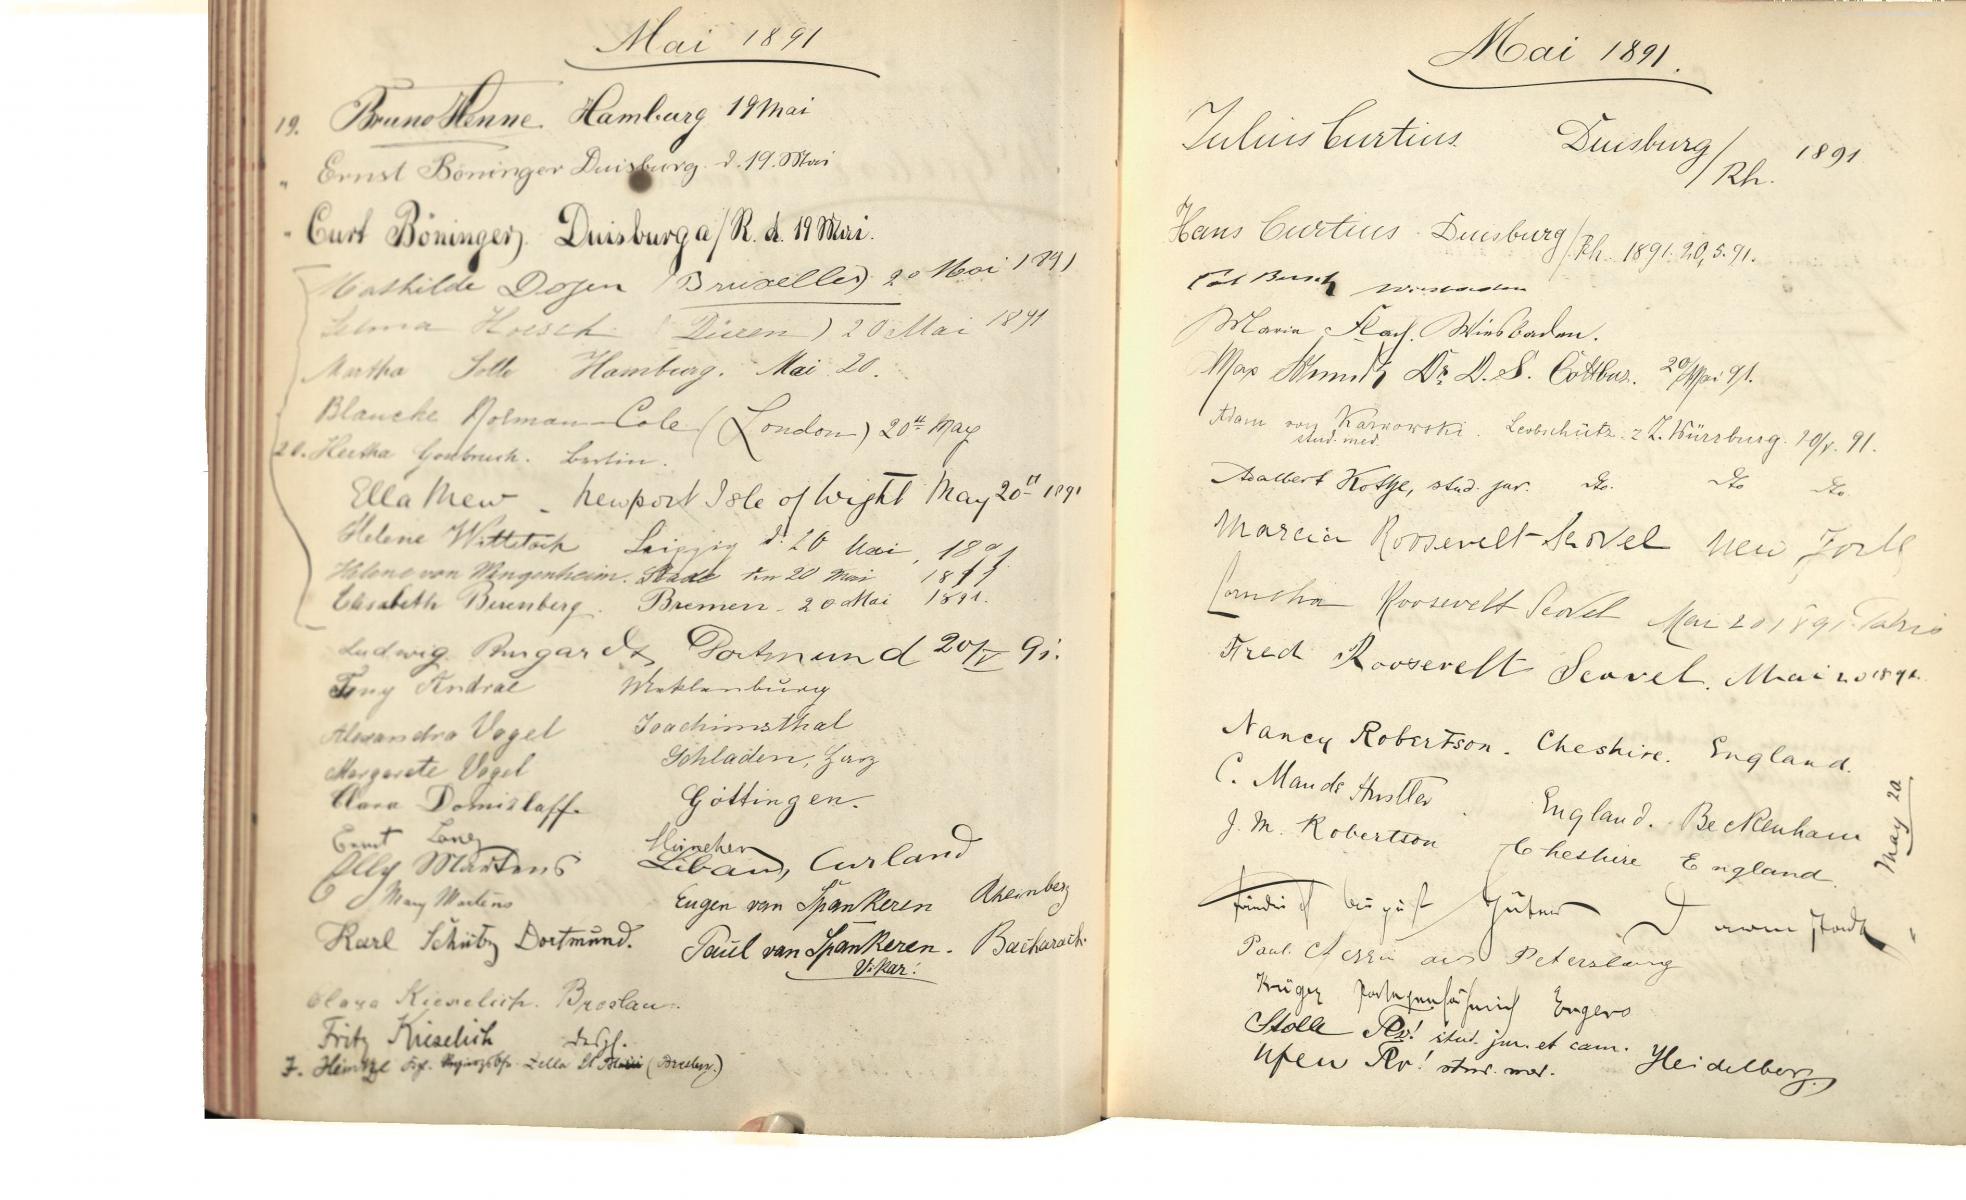 Mai 1891
19. Bruno Henne. Hamburg 19 Mai
" Ernst Böninger Duisburg d. 19. Mai
" Curt Böninger, Duisburg a/R. d. 19 Mai.
Mathilde (Bruxelles) 20 Mai 1891
Selma Hoesch (Düren) 20 Mai 1891
Martha Hamburg. Mai 20.
Blanche Holman-Cole (London) 20th May
20. Hertha Berlin.
Ella Mew - Newport Isle of Wight May 20th 1891
Helene Wittstock Leipzig d. 20 Mai, 1891
Helene von Wangenheim. Stade den 20 Mai 1891
Elisabeth Berenberg. Bremen. 20 Mai 1891.
Ludwig Dortmund 20/V 91.
Andrae Meklenburg
Alexandra Vogel Joachimsthal
Margarete Vogel Schladen, Harz
Clara Domizlaff. Göttingen.
Ernst Lang München
Elly Martens Libau, Curland
Mary Martens Eugen van Spankeren Rheinberg
Karl Schütz Dortmund. Paul van Spankeren. Bacharach.
Vikar.
Clara Kieselich. Breslau.
Fritz Kieselich
F. Heintze
Mai 1891.
Julius Curtius. Duisburg/Rh. 1891
Hans Curtius. Duisburg/Rh. 1891. 20,5.91.
Wiesbaden
Maria Flach. Wiesbaden.
Max Dr. D. S. Cottbus. 20/Mai 91.
Adam von Karwowski. Leobschütz. z. Z. Würzburg. 20/V. 91.
stud. med.
Adalbert stud. jur. do. do do.
Marcia Roosevelt Scovel New York
Cornelia Roosevelt Scovel Mai 20 1891.
Fred Roosevelt Scovel. Mai 20 1891.
Nancy Robertson. Cheshire. England.
C. Maude Hustler. England. Beckenham
J. M. Robertson Cheshire England.
May 20
Paul aus Petersburg
Krüger Engers
Stolle Rv! stud. jur. et cam.
Ufen Rv! stud. med. Heidelberg.